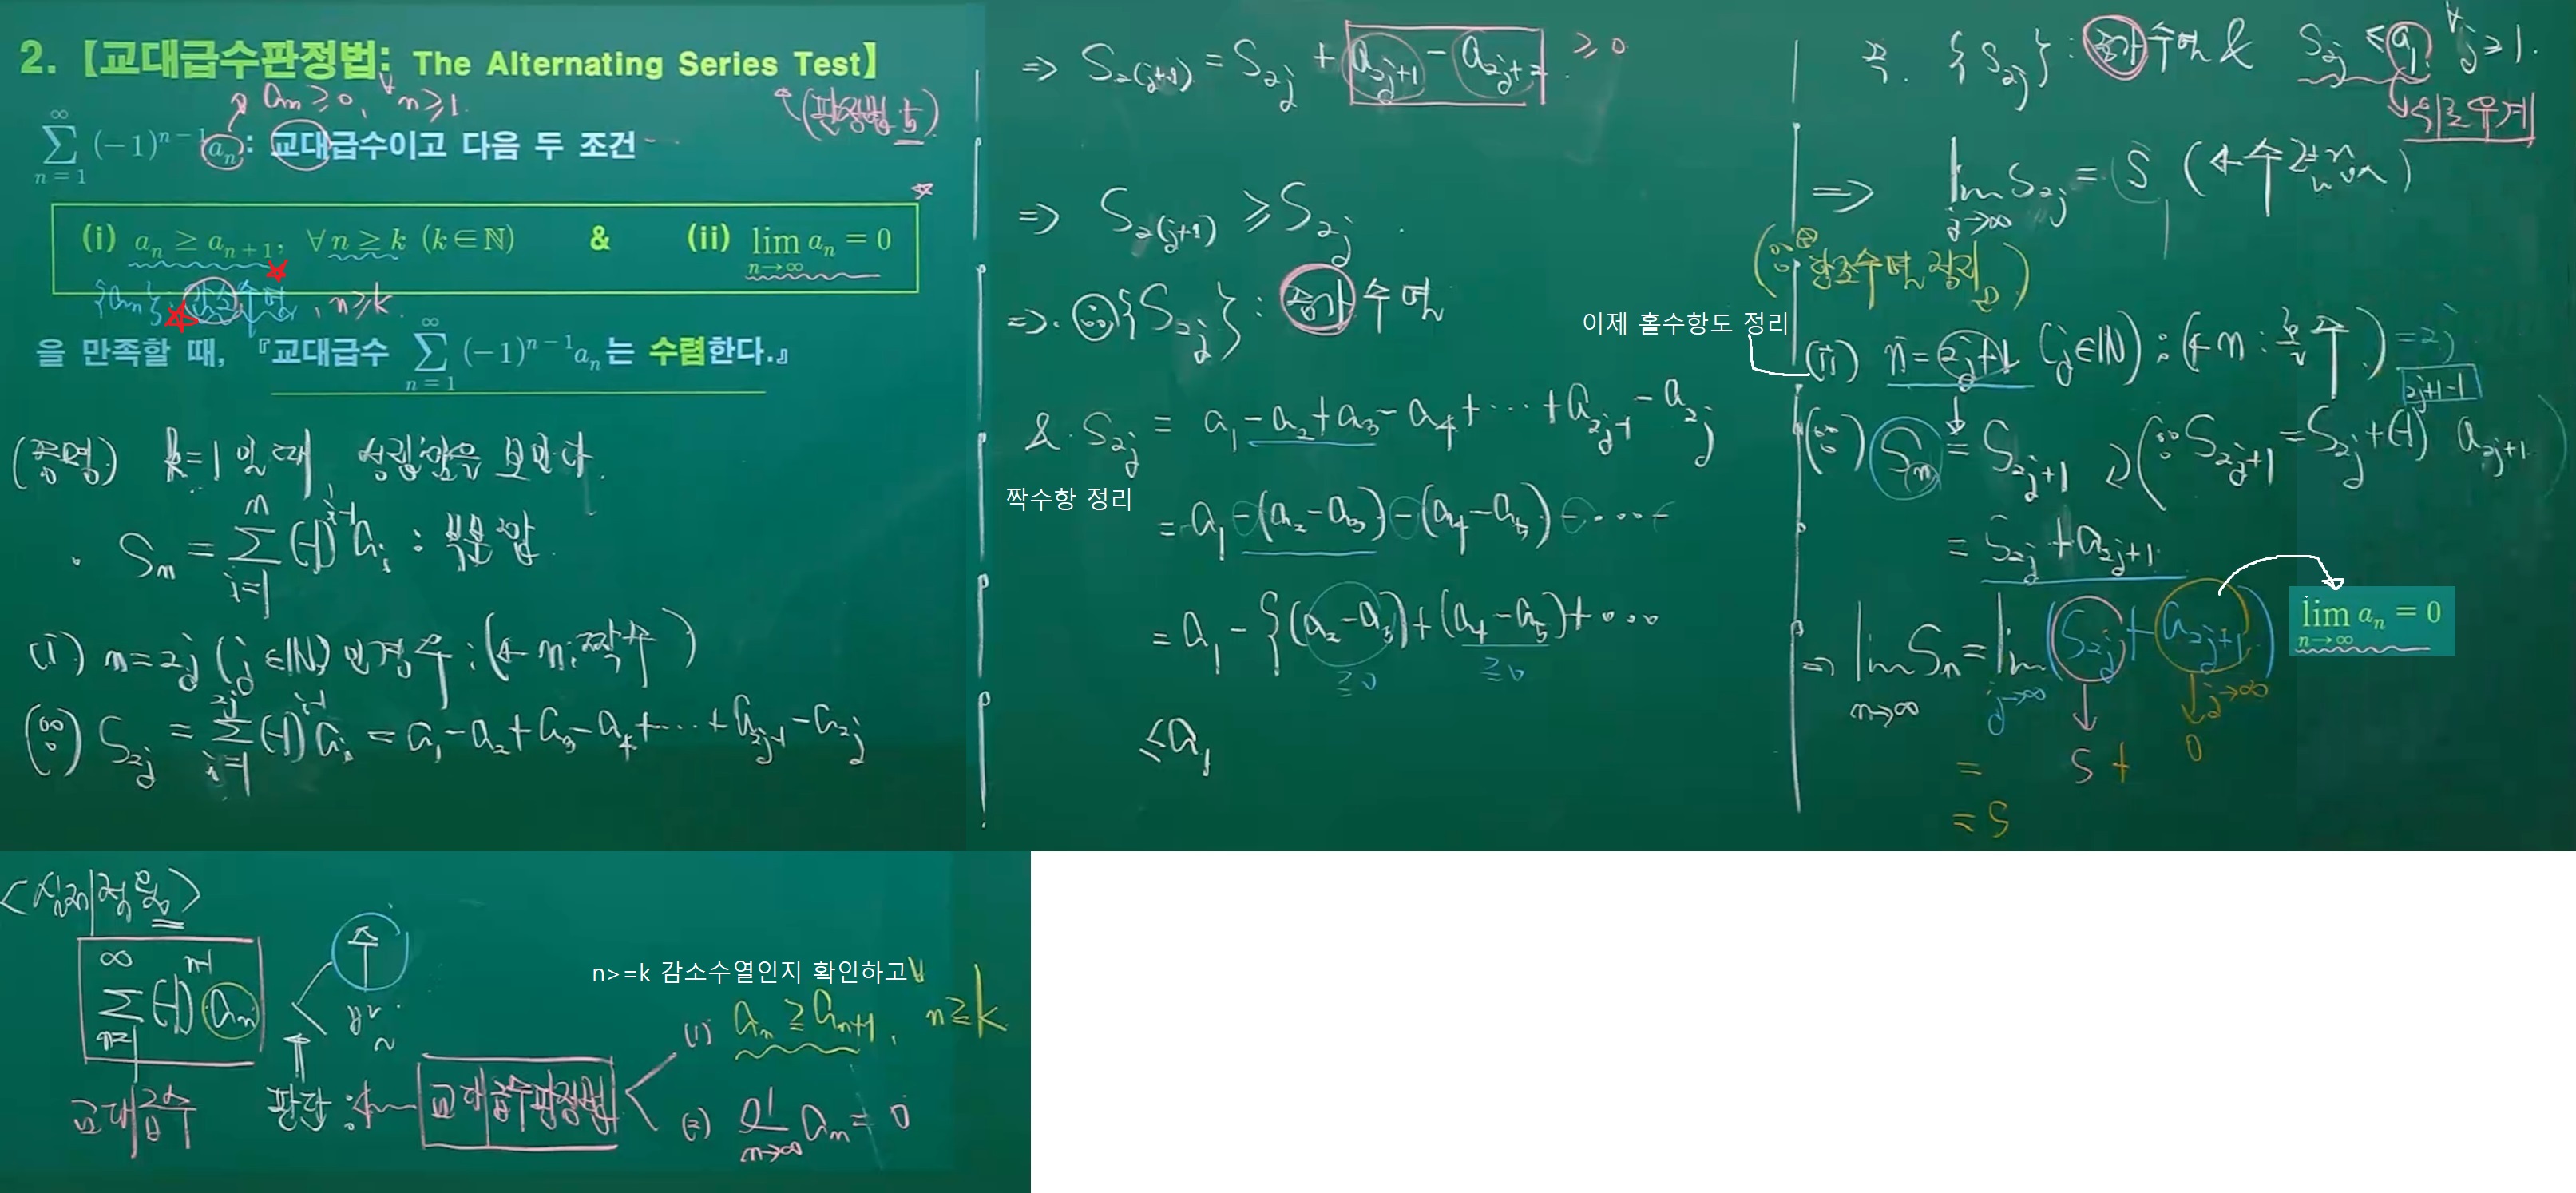 2. 【교대급수판정법: The Alternating Series Test】
aₙ ≥ 0, ∀n ≥ 1.
(판정법 5)
∑_{n=1}^{∞} (-1)^{n-1} aₙ : 교대급수이고 다음 두 조건
(i) aₙ ≥ aₙ₊₁, ∀n ≥ k (k∈ℕ) & (ii) lim_{n→∞} aₙ = 0
{aₙ} : 감소수열, n ≥ k.
을 만족할 때, 『교대급수 ∑_{n=1}^{∞} (-1)^{n-1} aₙ는 수렴한다.』
(증명) k=1 일 때 성립함을 보인다.
Sₙ = ∑_{i=1}^{n} (-1)^{i-1} aᵢ : 부분합
(i) n=2j (j∈ℕ)인 경우 : (← n: 짝수)
(∵) S_{2j} = ∑_{i=1}^{2j} (-1)^{i-1} aᵢ = a₁ - a₂ + a₃ - a₄ + ⋯ + a_{2j-1} - a_{2j}
⇒ S_{2(j+1)} = S_{2j} + a_{2j+1} - a_{2j+2} ≥ 0
⇒ S_{2(j+1)} ≥ S_{2j}.
⇒ ∴ {S_{2j}} : 증가수열
& S_{2j} = a₁ - a₂ + a₃ - a₄ + ⋯ + a_{2j-1} - a_{2j}
짝수항 정리
= a₁ - (a₂ - a₃) - (a₄ - a₅) - ⋯ -
= a₁ - {(a₂ - a₃) + (a₄ - a₅) + ⋯
≥0 ≥0
≤ a₁
즉. {S_{2j}} : 증가수열 & S_{2j} ≤ a₁, ∀j ≥ 1.
위로유계
⇒ lim_{j→∞} S_{2j} = S (← 수렴)
(∵ 단조수렴정리)
이제 홀수항도 정리
(ii) n=2j+1 (j∈ℕ) : (← n: 홀수) =2j
2j+1-1
(∵) Sₙ = S_{2j+1} (∵ S_{2j+1} = S_{2j} + (-1) a_{2j+1})
= S_{2j} + a_{2j+1}
⇒ lim_{n→∞} Sₙ = lim_{j→∞} (S_{2j} + a_{2j+1})
lim_{n→∞} aₙ = 0
j→∞
= S + 0
= S
<실제적용>
∑_{n=1}^{∞} (-1)^{n-1} aₙ
수
발
교대급수
판단 :
교대급수판정법
n>=k 감소수열인지 확인하고
(1) aₙ ≥ aₙ₊₁, ∀n ≥ k
(2) lim_{n→∞} aₙ = 0